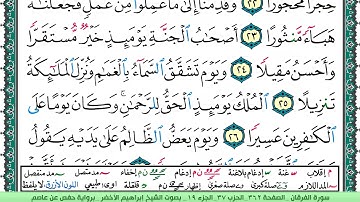 حِجْرًا مَّحْجُورًا ٢٢ وَقَدِمْنَآ إِلَىٰ مَا عَمِلُوا۟ مِنْ عَمَلٍ فَجَعَلْنَٰهُ
هَبَآءً مَّنثُورًا ٢٣ أَصْحَٰبُ ٱلْجَنَّةِ يَوْمَئِذٍ خَيْرٌ مُّسْتَقَرًّا
وَأَحْسَنُ مَقِيلًا ٢٤ وَيَوْمَ تَشَقَّقُ ٱلسَّمَآءُ بِٱلْغَمَٰمِ وَنُزِّلَ ٱلْمَلَٰٓئِكَةُ
تَنزِيلًا ٢٥ ٱلْمُلْكُ يَوْمَئِذٍ ٱلْحَقُّ لِلرَّحْمَٰنِ وَكَانَ يَوْمًا عَلَى
ٱلْكَٰفِرِينَ عَسِيرًا ٢٦ وَيَوْمَ يَعَضُّ ٱلظَّالِمُ عَلَىٰ يَدَيْهِ يَقُولُ
م إقلاب غنة إدغام بلاغنة إدغام إخفاء مد متصل مد منفصل
المد اللازم صلة كبرى صلة صغرى إظهار قلقلة طبيعي اللون الأزرق لا يلفظ
سورة الفرقان . الصفحة ٣٦٢ . الحزب ٣٧ الجزء ١٩ . بصوت الشيخ ابراهيم الأخضر . برواية حفص عن عاصم